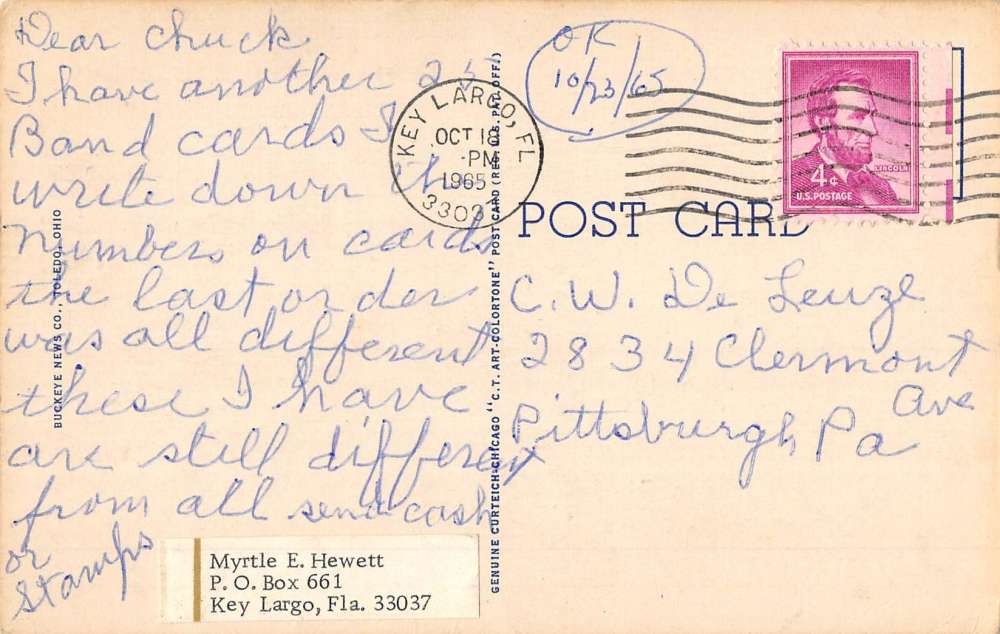 Dear Chuck
I have another 25
Band cards I
write down the
numbers on cards
the last order
was all different
these I have
are still different
from all send cash
or
stamps
Myrtle E. Hewett
P. O. Box 661
Key Largo, Fla. 33037
BUCKEYE NEWS CO., TOLEDO, OHIO
GENUINE CURTEICH-CHICAGO "C.T. ART-COLORTONE" POST CARD (REG. U.S. PAT. OFF.)
OK
10/23/65
KEY LARGO, FL
OCT 18
PM
1965
3303
4¢
LINCOLN
U.S. POSTAGE
POST CARD
C. W. De Leuze
2834 Clermont
Ave
Pittsburgh Pa